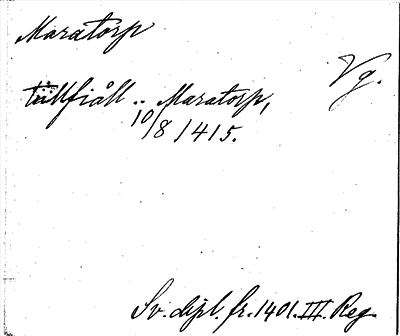 Maratorp
Vg.
tillfiäll .. Maratorp,
10/8 1415.
Sv. dipl. fr. 1401. III. Reg.